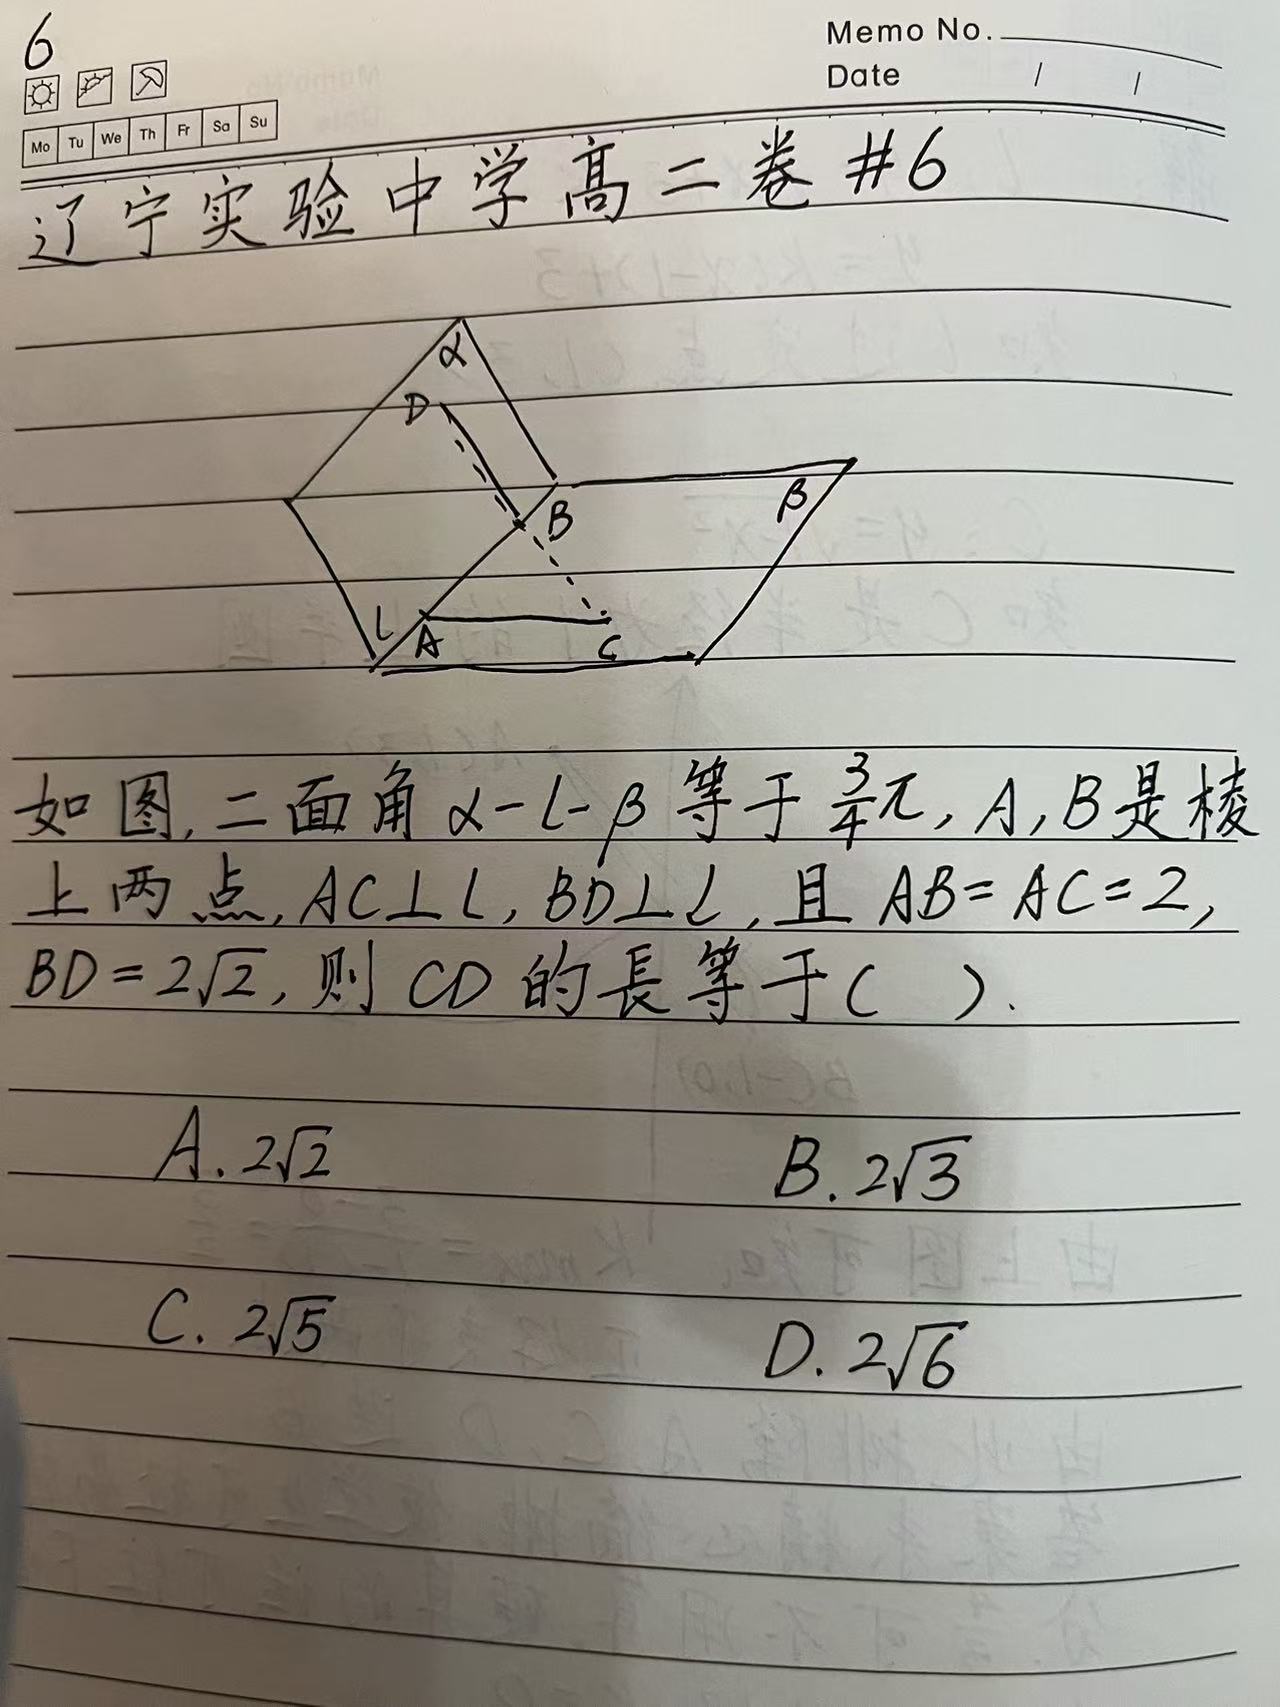 6
Memo No.
Date / /
Mo Tu We Th Fr Sa Su
辽宁实验中学高二卷#6
α
D
B
β
l
A
C
如图,二面角α-l-β等于3/4π,A,B是棱
上两点,AC⊥l,BD⊥l,且AB=AC=2,
BD=2√2,则CD的長等于( ).
A. 2√2 B. 2√3
C. 2√5 D. 2√6